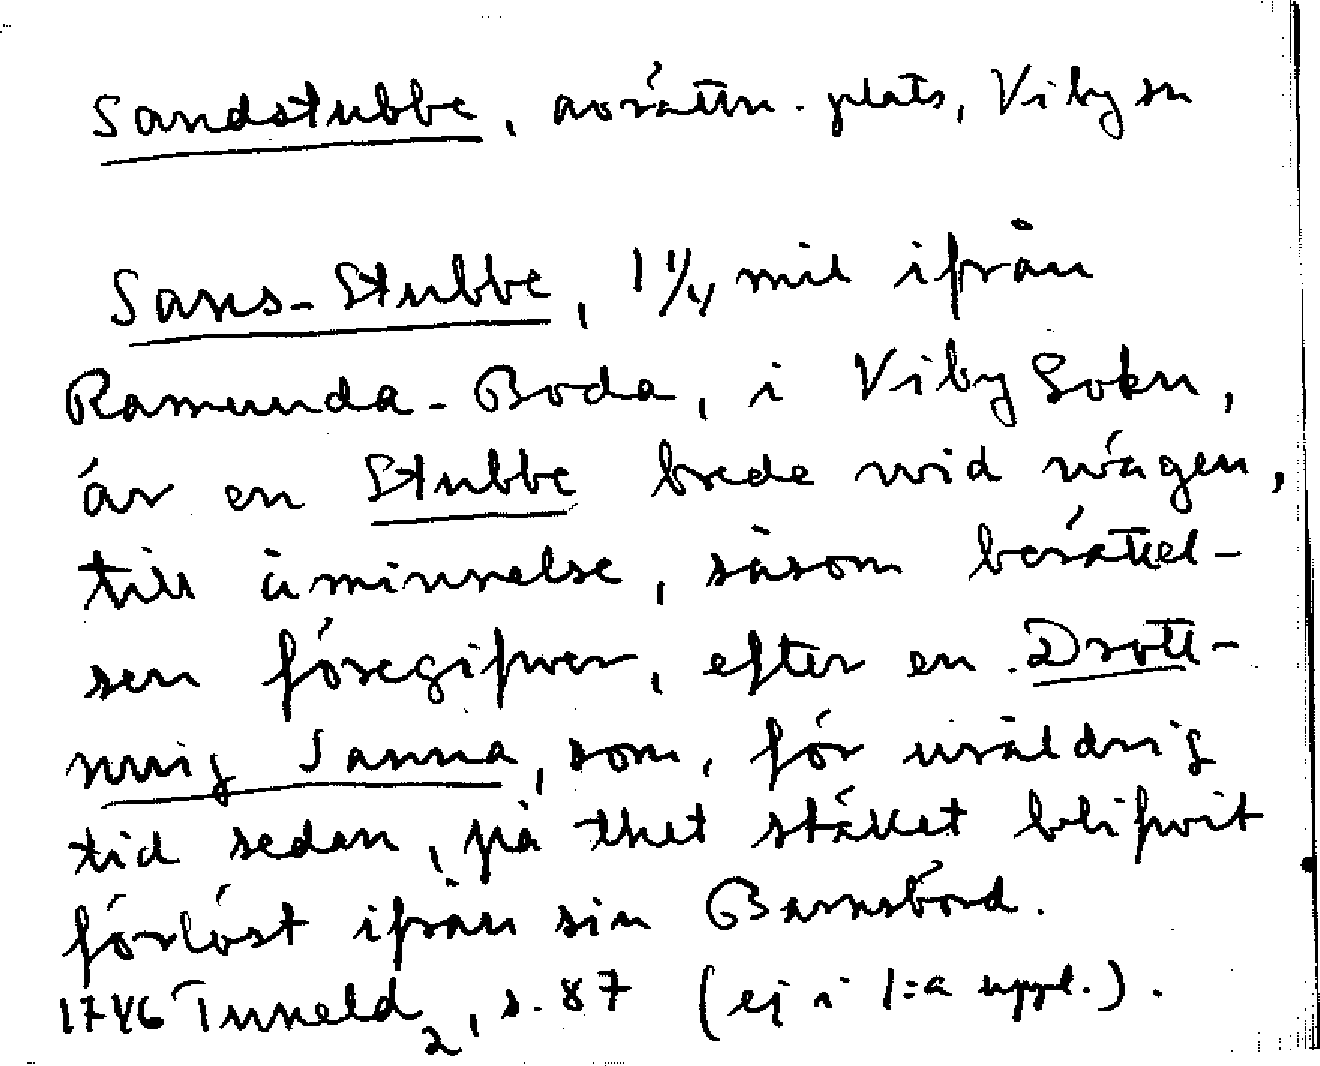 Sandstubbe, avrättn. plats, Viby sn
Sans-Stubbe, 1 1/4 mil ifrån
Ramunda-Boda, i Viby Sokn,
är en Stubbe brede wid wägen,
till åminnelse, såsom berättel-
sen föregifwer, efter en Drott-
ning Sanna, som, för uräldrig
tid sedan, på thet stället blifwit
förlöst ifrån sin Barnsbörd.
1746 Tuneld2, s. 87 (ej i 1:a uppl.).